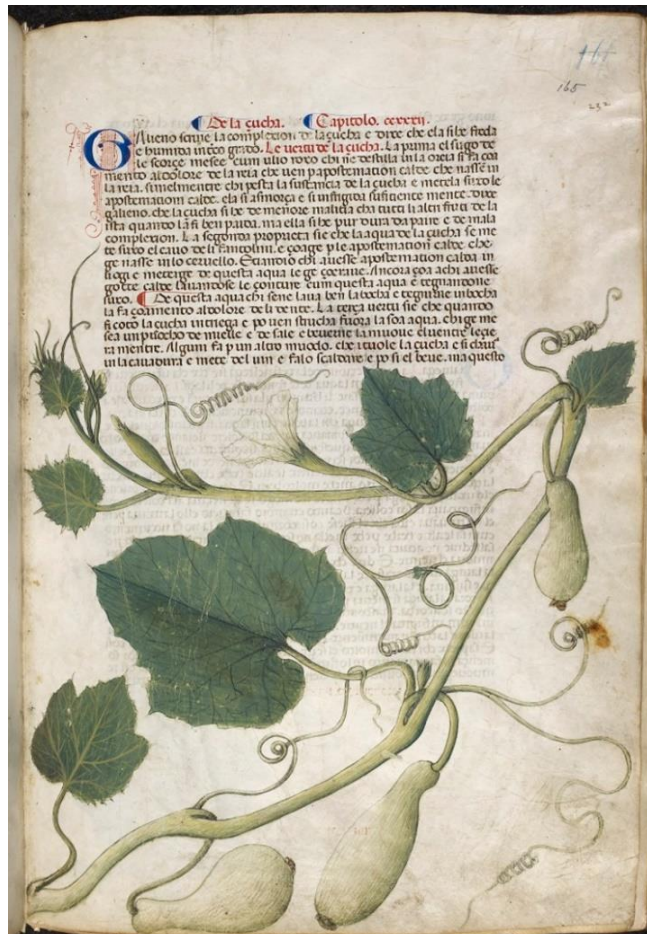 165
232
De la çucha. Capitolo. ccxxxij.
Galieno scriue la complexion de la çucha e dixe che ela si he freda
e humida in terço grado. Le uertu de la çucha. La prima el sugo de
le scorçe mesce cum olio roxo chi ne destilla in la orecla si fa ço
mento al dolore de la
la reia. simelmentre chi pesta la sustancia de la çucha e metela suxo le
apostemation calde. ela si asmorça e si infrigida sufficiente mente. dixe
galieno. che la çucha si he de menore malicia cha tucti li altri fruti de la
ista quando la si ben paida. ma ella si he pur dura da paire e de mala
complexion. La segonda proprieta sie che la aqua de la çucha se me
te suxo el cauo de li fantolini. e çoage p le apostemation calde. che
ge nasse in lo ceruello. E tanto chi auesse apostemation calda in
li ogi e meterge de questa aqua le ge çoeraue. Ancora çoa a chi auesse
gotte calde lauandose le çonture cum questa aqua e tegnandone
suxo. De questa aqua chi se ne laua ben la bocha e tegnirne in bocha
la fa çoamento al dolore de li dente. La terça uertu sie che quando
si coto la cucha intriega e po uen strucha fuora la soa aqua. chi ge me
sea un pocho de mielle e de sale e beuerne la muoue el uentre leçie
ra mentre. Alguni fa p un altro muodo. che i tuole la çucha e si chaua
in la cauadura e mete del uin e falo scaldare e po si el beue. ma questo